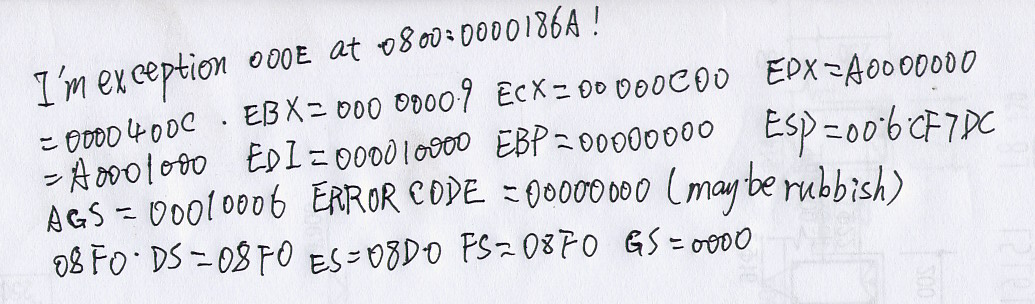 I'm exception 000E at 0800:0000186A!
=0000400C . EBX=00000009 ECX=00000C00 EDX=A0000000
=A0001000 EDI=000010000 EBP=00000000 ESP=006CF7DC
AGS=00010006 ERROR CODE=00000000 (maybe rubbish)
08F0. DS=08F0 ES=08D0 FS=08F0 GS=0000